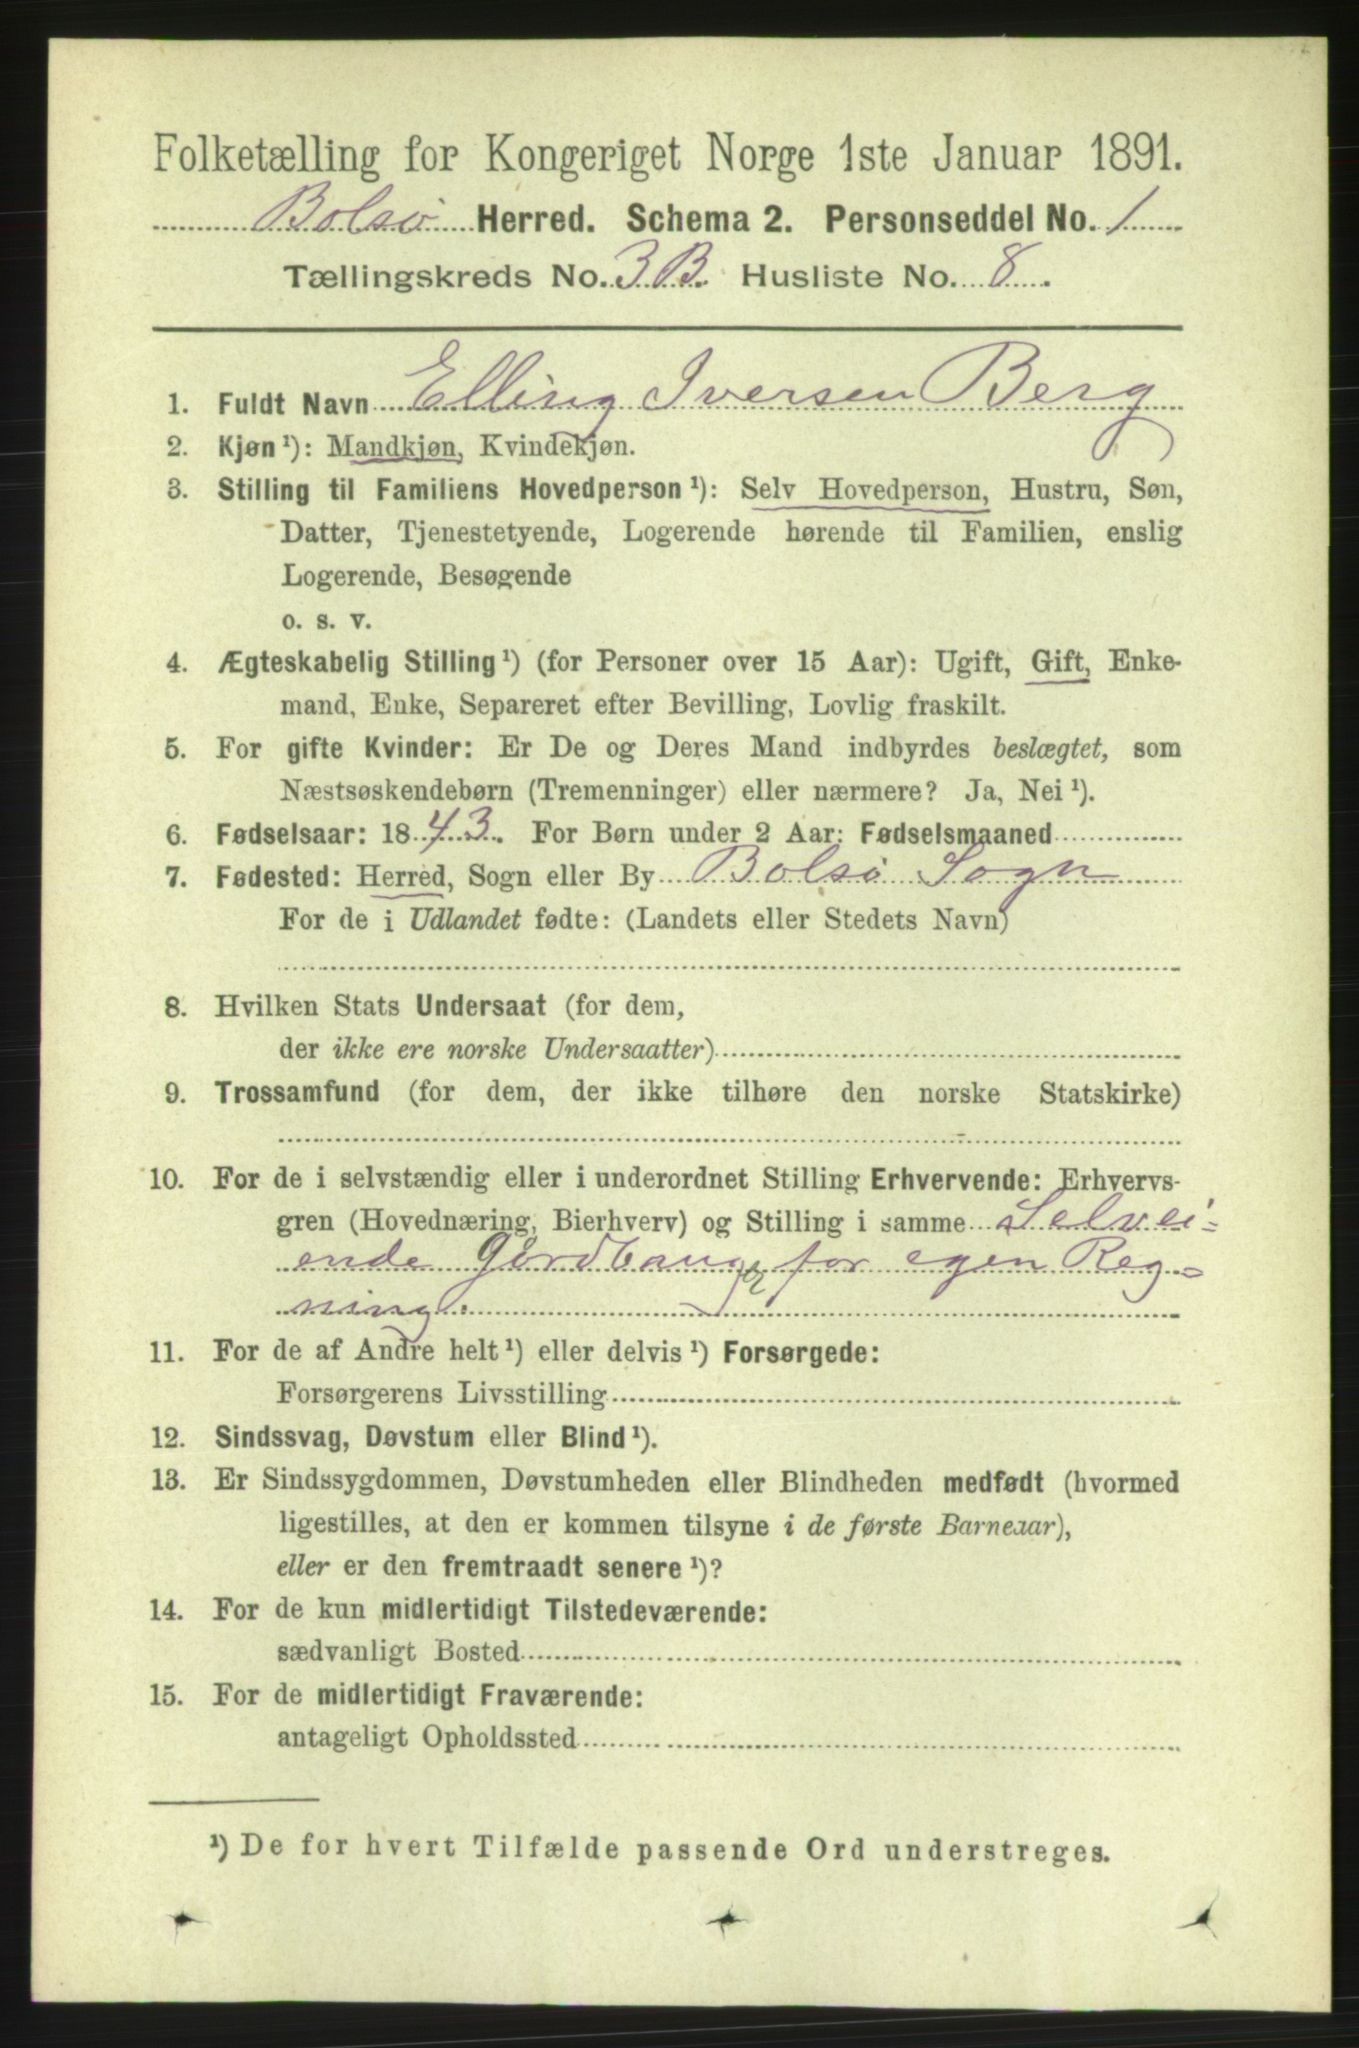 Folketælling for Kongeriget Norge 1ste Januar 1891.
Bolsø Herred. Schema 2. Personseddel No. 1
Tællingskreds No. 3B. Husliste No. 8.
1. Fuldt Navn Elling Iversen Berg
2. Kjøn ¹): Mandkjøn, Kvindekjøn.
3. Stilling til Familiens Hovedperson ¹): Selv Hovedperson, Hustru, Søn,
Datter, Tjenestetyende, Logerende hørende til Familien, enslig
Logerende, Besøgende
o. s. v.
4. Ægteskabelig Stilling ¹) (for Personer over 15 Aar): Ugift, Gift, Enke-
mand, Enke, Separeret efter Bevilling, Lovlig fraskilt.
5. For gifte Kvinder: Er De og Deres Mand indbyrdes beslægtet, som
Næstsøskendebørn (Tremenninger) eller nærmere? Ja, Nei ¹).
6. Fødselsaar: 1843. For Børn under 2 Aar: Fødselsmaaned
7. Fødested: Herred, Sogn eller By Bolsø Sogn
For de i Udlandet fødte: (Landets eller Stedets Navn)
8. Hvilken Stats Undersaat (for dem,
der ikke ere norske Undersaatter)
9. Trossamfund (for dem, der ikke tilhøre den norske Statskirke)
10. For de i selvstændig eller i underordnet Stilling Erhvervende: Erhvervs-
gren (Hovednæring, Bierhverv) og Stilling i samme Selvei=
ende Gårdbruger for egen Reg=
ning.
11. For de af Andre helt ¹) eller delvis ¹) Forsørgede:
Forsørgerens Livsstilling
12. Sindssvag, Døvstum eller Blind ¹).
13. Er Sindssygdommen, Døvstumheden eller Blindheden medfødt (hvormed
ligestilles, at den er kommen tilsyne i de første Barneaar),
eller er den fremtraadt senere ¹)?
14. For de kun midlertidigt Tilstedeværende:
sædvanligt Bosted
15. For de midlertidigt Fraværende:
antageligt Opholdssted
¹) De for hvert Tilfælde passende Ord understreges.